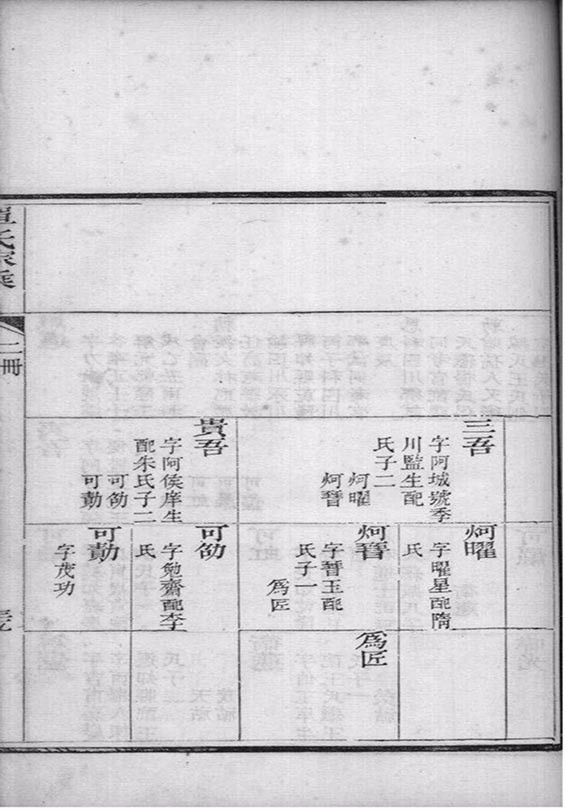 三吾
字阿城號季
川監生配
氏子二
炣曜
炣㬜
貴吾
字阿侯庠生
配朱氏子二
可劬
可勷
炣曜
字曜星配隋
氏
炣㬜
字㬜玉配
氏子一
為匠
可劬
字勉齋配李
氏
可勷
字茂功
為匠
氏家乘
二冊